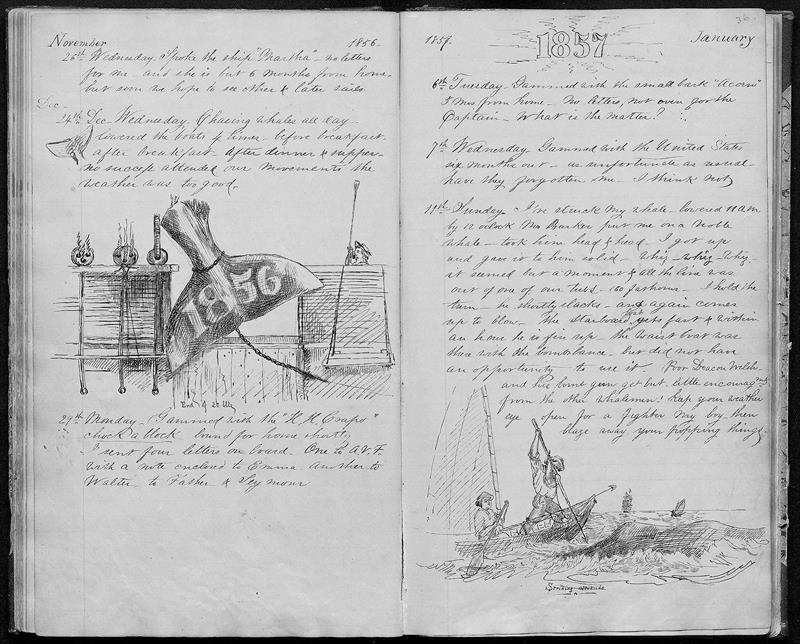 November 1856.
26th Wednesday. Spoke the ship "Martha" - no letters
for me - and she is but 6 months from home -
but soon we hope to see other & later sails
Dec -
24th Dec Wednesday. Chasing whales all day -
lowered the boats 4 times - before breakfast -
after breakfast - after dinner & supper -
no success attended our movements the
weather was too good.
1856
End of 56
29th Monday - Gammed with the "H. H. Crapo"
chock a block bound for home shortly
I sent four letters on board. One to A.V.F.
with a note enclosed to Emma another to
Walter to Father & Seymour
36
1857. 1857 January
6th Tuesday. Gammed with the small bark "Acorn"
5 mos from home - No letters, not even for the
Captain - What is the matter?
7th Wednesday Gammed with the United States
six months out - as unfortunate as usual -
have they forgotten me - I think not
11th Sunday. I've struck my whale - lowered 11 a.m.
by 12 o'clock Mr Barker put me on a noble
whale - took him head & head - I got up
and gave it to him solid - whiz - whiz - whiz -
it seemed but a moment & all the line was
out of one of our tubs - 150 fathoms - I hold the
turn - he shortly slacks - and again comes
up to blow - The starboard boat gets fast & within
an hour he is fin up. The waist boat was
there with the bomblance - but did not have
an opportunity to use it. Poor Deacon Welsh -
and his bomb gun get but little encouragment
from the other whalemen! keep your weather
eye open for a fighter my boy then
blaze away your popping things
Striking attitude